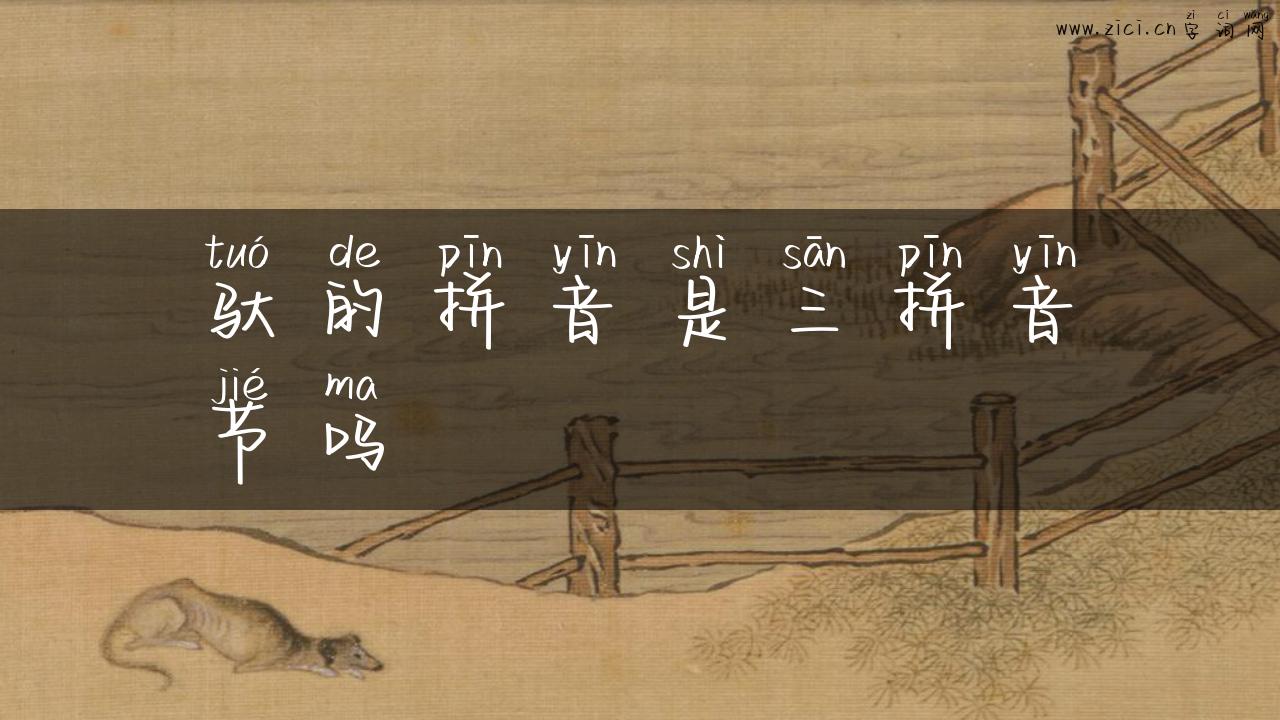 zì cí wǎng
www.zici.cn 字词网
tuó de pīn yīn shì sān pīn yīn
驮的拼音是三拼音
jié ma
节吗